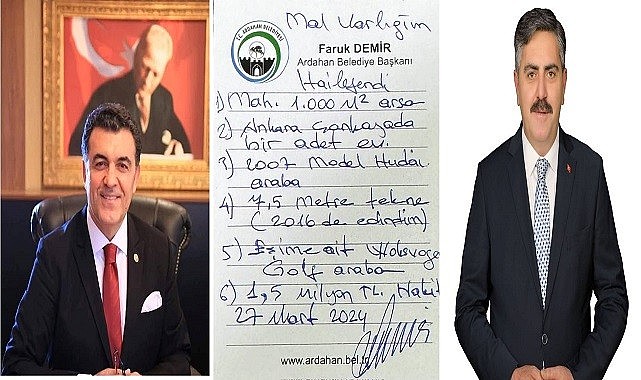 Mal Varlığım
T.C. ARDAHAN BELEDİYESİ
Faruk DEMİR
Ardahan Belediye Başkanı
Halilefendi
1) Mah. 1.000 M² arsa
2) Ankara Çankayada
bir adet ev.
3) 2007 Model Hudai
araba
4) 7,5 Metre tekne
(2016 de edindim)
5) Eşime ait Wolsvoge
Golf araba
6) 1,5 milyon TL. Nakit
27 Mart 2024
www.ardahan.bel.tr